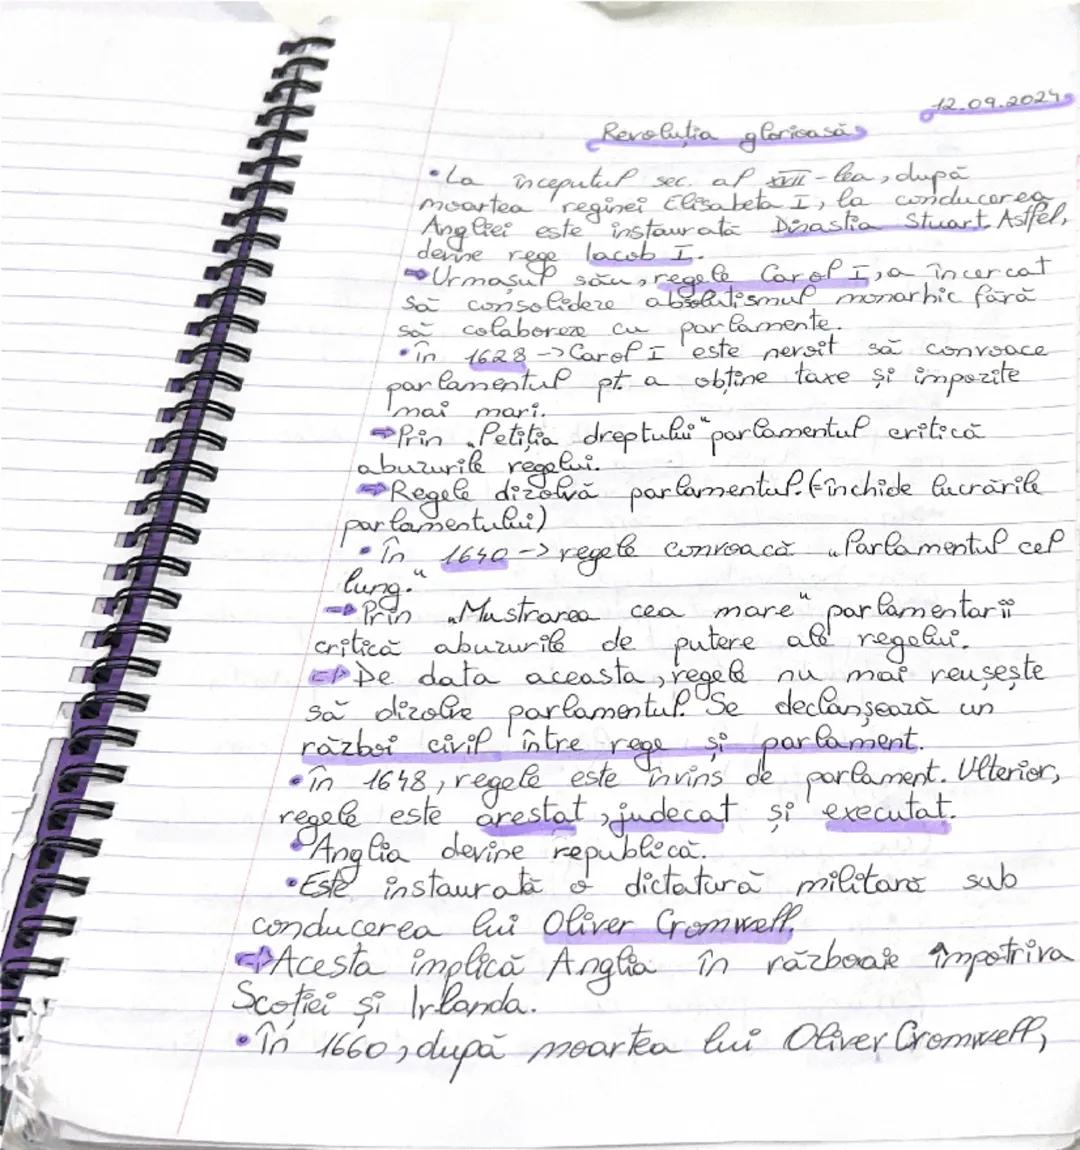 12.09.2024
Revoluția glorioasă
• La începutul sec. al XVII-lea, după
moartea reginei Elisabeta I, la conducerea
Angliei este instaurată Dinastia Stuart. Astfel,
devine rege Iacob I.
⇨ Urmașul său, regele Carol I, a încercat
să consolideze absolutismul monarhic fără
să colaboreze cu parlamente.
• în 1628 -> Carol I este nevoit să convoace
parlamentul pt. a obține taxe și impozite
mai mari.
⇨ Prin „Petiția dreptului" parlamentul critică
abuzurile regelui.
⇨ Regele dizolvă parlamentul. (=închide lucrările
parlamentului)
• în 1640 -> regele convoacă „Parlamentul cel
lung."
⇨ Prin „Mustrarea cea mare" parlamentarii
critică abuzurile de putere ale regelui.
⇨ De data aceasta, regele nu mai reușește
să dizolve parlamentul. Se declanșează un
război civil între rege și parlament.
• în 1648, regele este învins de parlament. Ulterior,
regele este arestat, judecat și executat.
• Anglia devine republică.
• Este instaurată o dictatură militară sub
conducerea lui Oliver Cromwell.
⇨ Acesta implică Anglia în războaie împotriva
Scoției și Irlanda.
• În 1660, după moartea lui Oliver Cromwell,